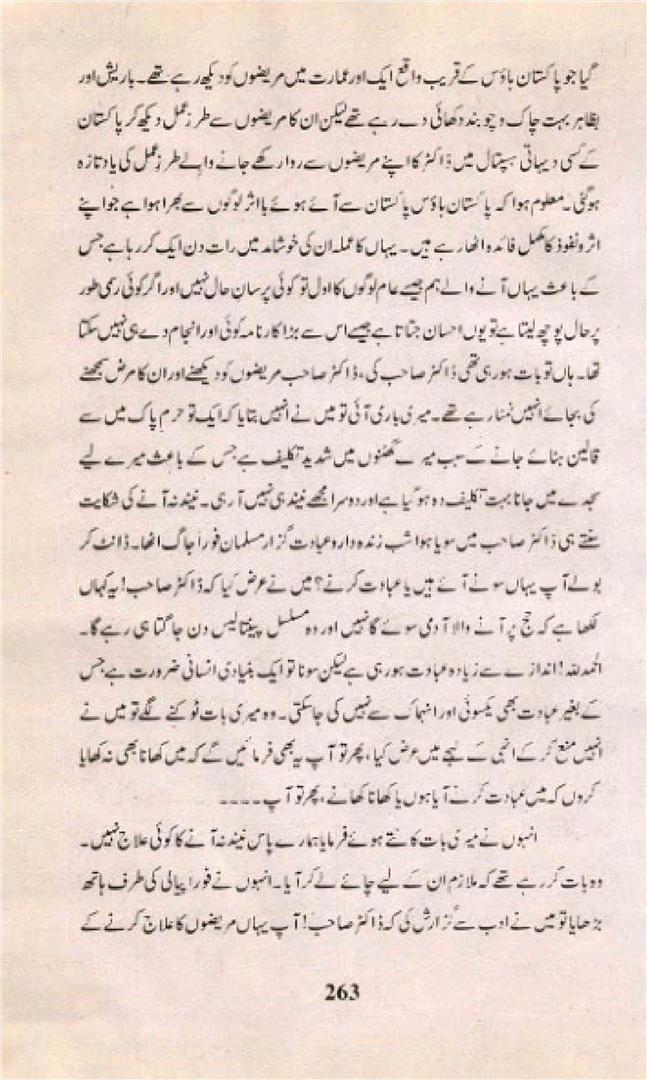 گیا جو پاکستان ہاؤس کے قریب واقع ایک اور عمارت میں مریضوں کو دیکھ رہے تھے۔ باریش اور
بظاہر بہت چاک و چوبند دکھائی دے رہے تھے لیکن ان کا مریضوں سے طرزِ عمل دیکھ کر پاکستان
کے کسی دیہاتی ہسپتال میں ڈاکٹر کا اپنے مریضوں سے روا رکھے جانے والے طرزِ عمل کی یاد تازہ
ہو گئی۔ معلوم ہوا کہ پاکستان ہاؤس پاکستان سے آئے ہوئے با اثر لوگوں سے بھرا ہوا ہے جو اپنے
اثر و نفوذ کا مکمل فائدہ اٹھا رہے ہیں۔ یہاں کا عملہ ان کی خوشامد میں رات دن ایک کر رہا ہے جس
کے باعث یہاں آنے والے ہم جیسے عام لوگوں کا اول تو کوئی پرسانِ حال نہیں اور اگر کوئی رسمی طور
پر حال پوچھ لیتا ہے تو یوں احسان جتاتا ہے جیسے اس سے بڑا کارنامہ کوئی اور انجام دے ہی نہیں سکتا
تھا۔ ہاں تو بات ہو رہی تھی ڈاکٹر صاحب کی، ڈاکٹر صاحب مریضوں کو دیکھنے اور ان کا مرض سمجھنے
کی بجائے انہیں نمٹا رہے تھے۔ میری باری آئی تو میں نے انہیں بتایا کہ ایک تو حرم پاک میں سے
قالین ہٹائے جانے کے سبب میرے گھٹنوں میں شدید تکلیف ہے جس کے باعث میرے لیے
سجدے میں جانا بہت تکلیف دہ ہو گیا ہے اور دوسرا مجھے نیند ہی نہیں آ رہی۔ نیند نہ آنے کی شکایت
سنتے ہی ڈاکٹر صاحب میں سویا ہوا شب زندہ دار و عبادت گزار مسلمان فوراً جاگ اٹھا۔ ڈانٹ کر
بولے آپ یہاں سونے آئے ہیں یا عبادت کرنے؟ میں نے عرض کیا کہ ڈاکٹر صاحب! یہ کہاں
لکھا ہے کہ حج پر آنے والا آدمی سوئے گا نہیں اور وہ مسلسل پینتالیس دن جاگتا ہی رہے گا۔
الحمدللہ! اندازے سے زیادہ عبادت ہو رہی ہے لیکن سونا تو ایک بنیادی انسانی ضرورت ہے جس
کے بغیر عبادت بھی یکسوئی اور انہماک سے نہیں کی جا سکتی۔ وہ میری بات ٹوکنے لگے تو میں نے
انہیں منع کر کے انہی کے لہجے میں عرض کیا، پھر تو آپ یہ بھی فرمائیں گے کہ میں کھانا بھی نہ کھایا
کروں کہ میں عبادت کرنے آیا ہوں یا کھانا کھانے، پھر تو آپ۔۔۔۔
انہوں نے میری بات کاٹتے ہوئے فرمایا ہمارے پاس نیند نہ آنے کا کوئی علاج نہیں۔
وہ بات کر رہے تھے کہ ملازم ان کے لیے چائے لے کر آیا۔ انہوں نے فوراً پیالی کی طرف ہاتھ
بڑھایا تو میں نے ادب سے گزارش کی کہ ڈاکٹر صاحب! آپ یہاں مریضوں کا علاج کرنے کے
263